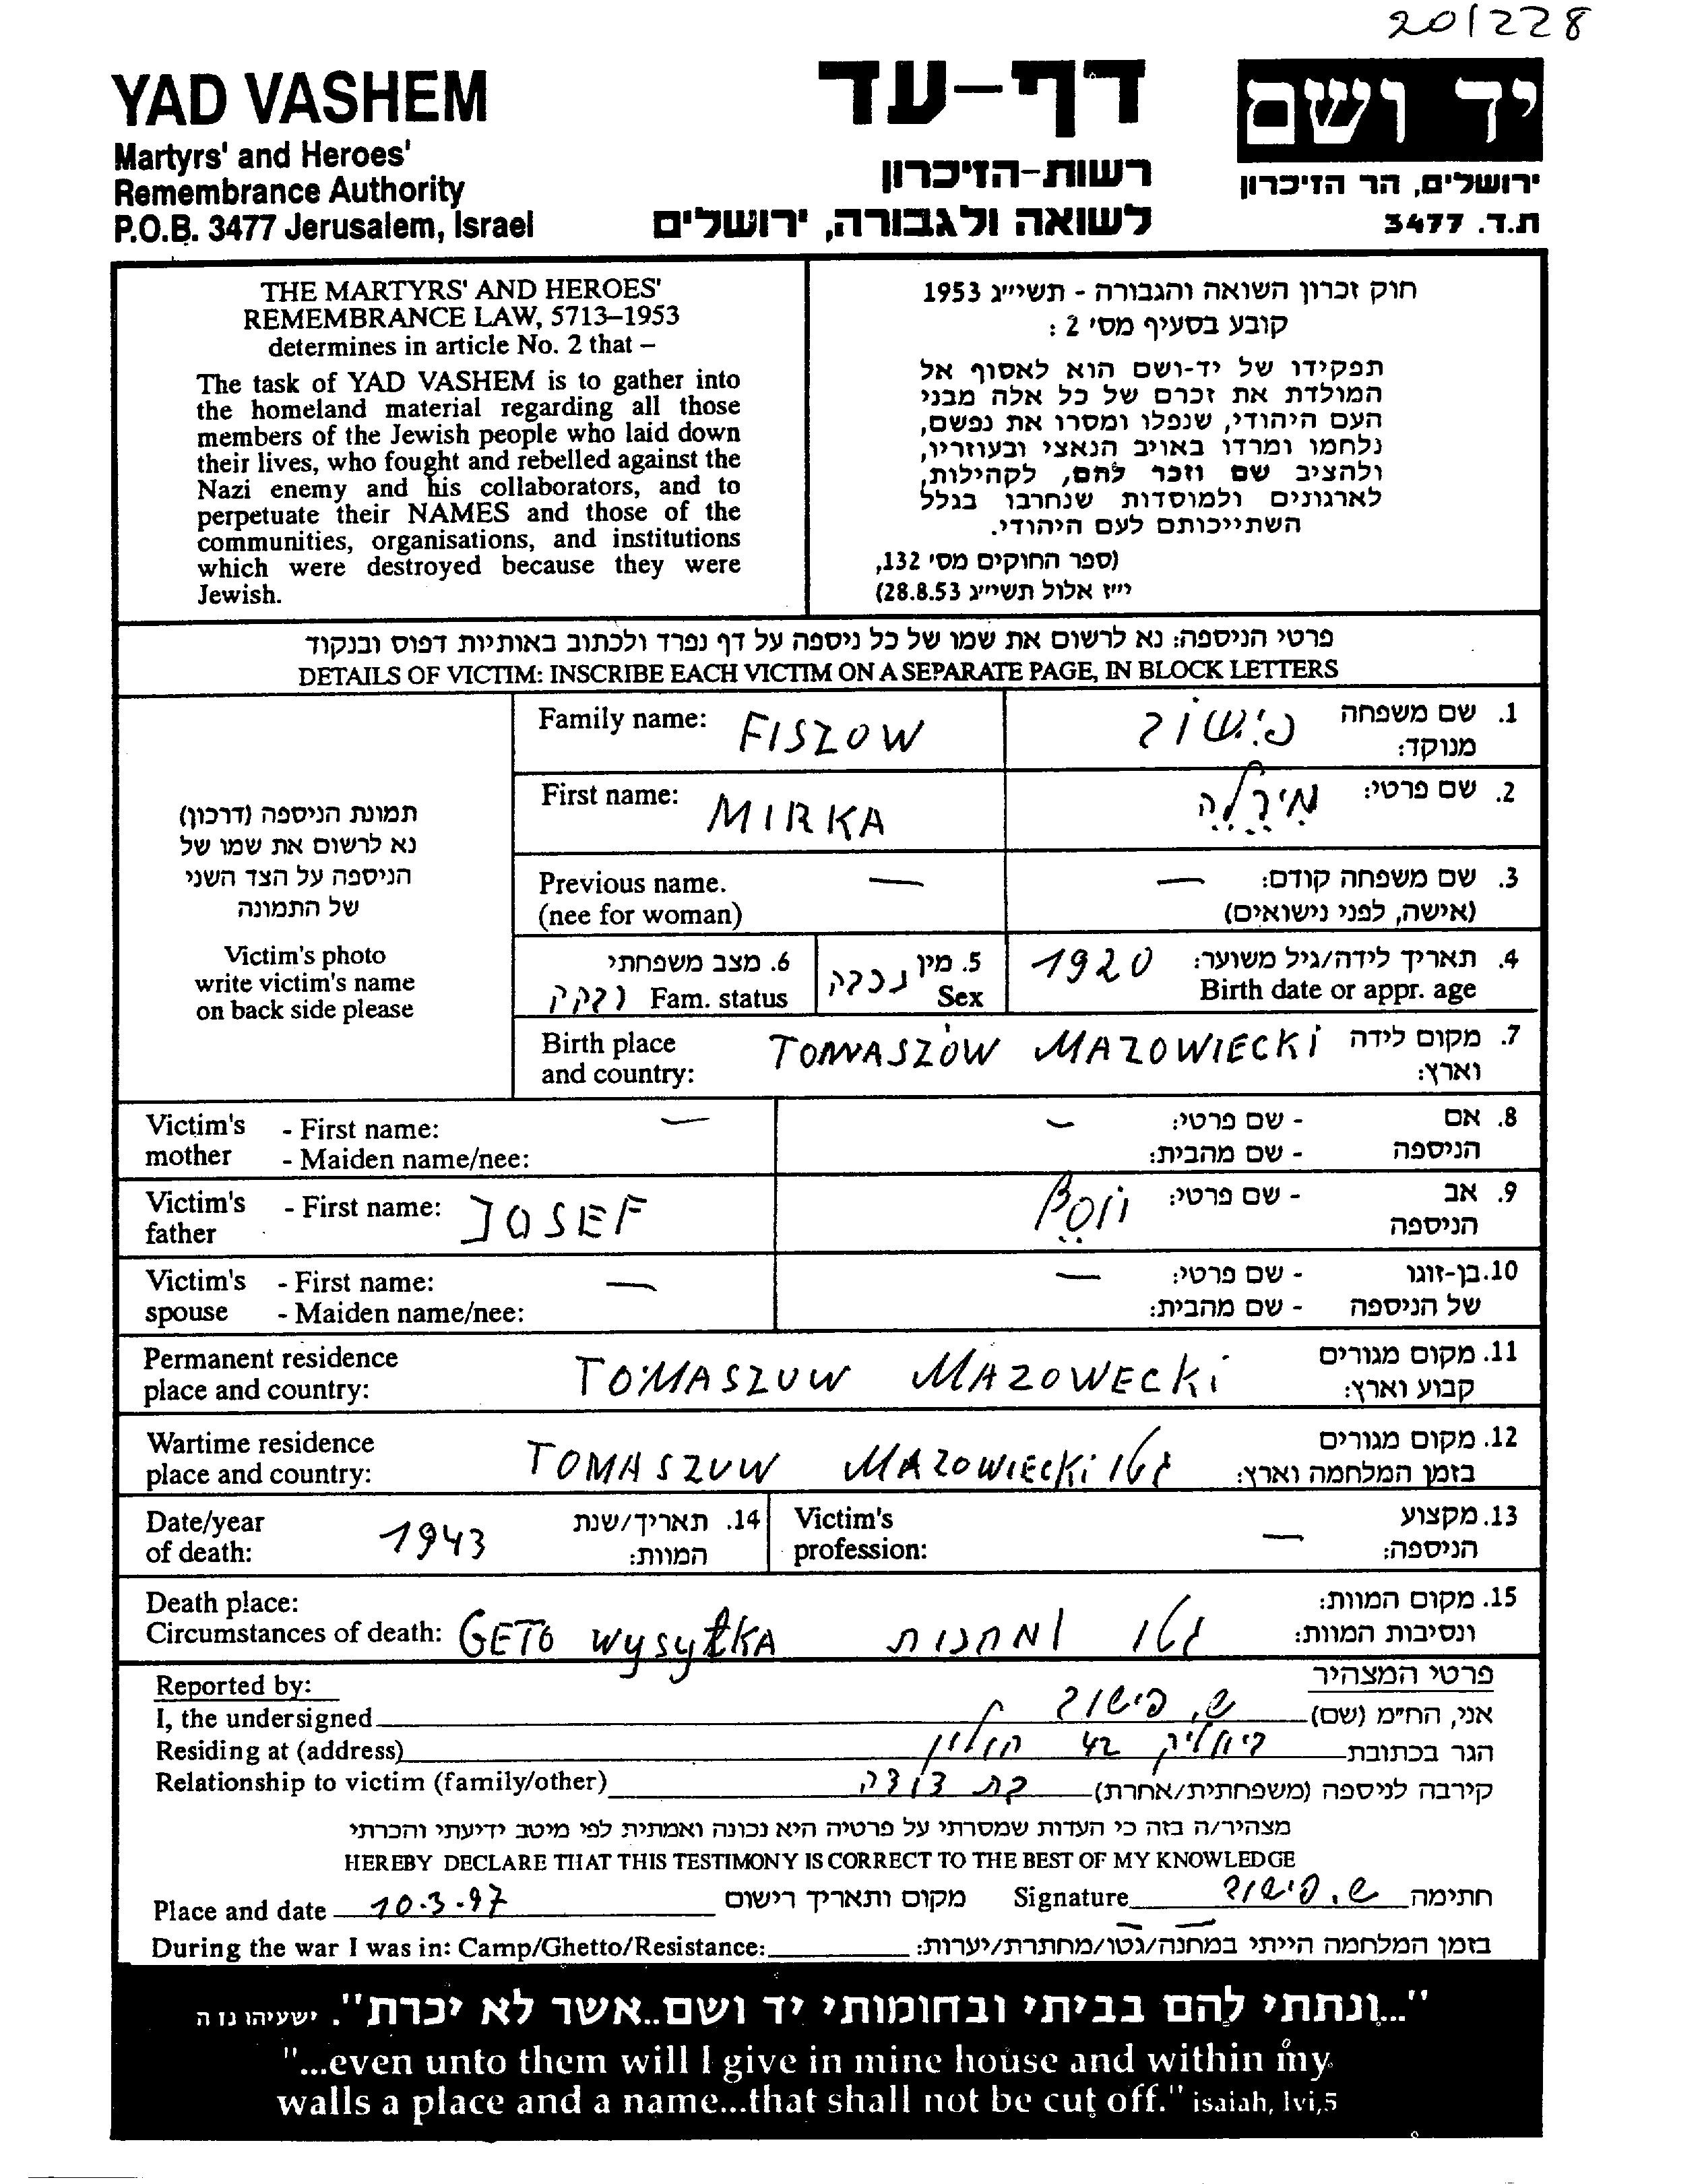 201228
YAD VASHEM
Martyrs' and Heroes'
Remembrance Authority
P.O.B. 3477 Jerusalem, Israel
דף-עד
רשות-הזיכרון
לשואה ולגבורה, ירושלים
יד ושם
ירושלים, הר הזיכרון
ת.ד. 3477
THE MARTYRS' AND HEROES'
REMEMBRANCE LAW, 5713–1953
determines in article No. 2 that –
The task of YAD VASHEM is to gather into
the homeland material regarding all those
members of the Jewish people who laid down
their lives, who fought and rebelled against the
Nazi enemy and his collaborators, and to
perpetuate their NAMES and those of the
communities, organisations, and institutions
which were destroyed because they were
Jewish.
חוק זכרון השואה והגבורה - תשי״ג 1953
קובע בסעיף מס׳ 2 :
תפקידו של יד-ושם הוא לאסוף אל
המולדת את זכרם של כל אלה מבני
העם היהודי, שנפלו ומסרו את נפשם,
נלחמו ומרדו באויב הנאצי ובעוזריו,
ולהציב שם וזכר להם, לקהילות,
לארגונים ולמוסדות שנחרבו בגלל
השתייכותם לעם היהודי.
(ספר החוקים מס׳ 132,
י״ז אלול תשי״ג 28.8.53)
פרטי הניספה: נא לרשום את שמו של כל ניספה על דף נפרד ולכתוב באותיות דפוס ובנקוד
DETAILS OF VICTIM: INSCRIBE EACH VICTIM ON A SEPARATE PAGE, IN BLOCK LETTERS
תמונת הניספה (דרכון)
נא לרשום את שמו של
הניספה על הצד השני
של התמונה
Victim's photo
write victim's name
on back side please
Family name: FISZOW פישוב 1. שם משפחה
מנוקד:
First name: MIRKA 2. שם פרטי:
Previous name. — — 3. שם משפחה קודם:
(nee for woman) (אישה, לפני נישואים)
6. מצב משפחתי 5. מין נקבה 1920 4. תאריך לידה/גיל משוער:
רווקה Fam. status Sex Birth date or appr. age
Birth place TOMASZÓW MAZOWIECKI 7. מקום לידה
and country: וארץ:
Victim's - First name: — — - שם פרטי: 8. אם
mother - Maiden name/nee: - שם מהבית: הניספה
Victim's - First name: JOSEF יוסף - שם פרטי: 9. אב
father הניספה
Victim's - First name: — — - שם פרטי: 10. בן-זוגו
spouse - Maiden name/nee: - שם מהבית: של הניספה
Permanent residence TOMASZUW MAZOWECKI 11. מקום מגורים
place and country: קבוע וארץ:
Wartime residence TOMASZUW MAZOWIECKI גטו 12. מקום מגורים
place and country: בזמן המלחמה וארץ:
Date/year 1943 14. תאריך/שנת Victim's — 13. מקצוע
of death: המוות: profession: הניספה:
Death place: 15. מקום המוות:
Circumstances of death: GETO wysyŁKA גטו ומחנות ונסיבות המוות:
Reported by: פרטי המצהיר
I, the undersigned ש. פישוב אני, הח״מ (שם)
Residing at (address) 42 חולון הגר בכתובת
Relationship to victim (family/other) בת דודה קירבה לניספה (משפחתית/אחרת)
מצהיר/ה בזה כי העדות שמסרתי על פרטיה היא נכונה ואמתית לפי מיטב ידיעתי והכרתי
HEREBY DECLARE THAT THIS TESTIMONY IS CORRECT TO THE BEST OF MY KNOWLEDGE
Place and date 10.3.97 מקום ותאריך רישום Signature ש. פישוב חתימה
During the war I was in: Camp/Ghetto/Resistance: — — בזמן המלחמה הייתי במחנה/גטו/מחתרת/יערות:
"...ונתתי להם בביתי ובחומותי יד ושם..אשר לא יכרת". ישעיהו נו ה
"...even unto them will I give in mine house and within my
walls a place and a name...that shall not be cut off." isaiah, lvi,5